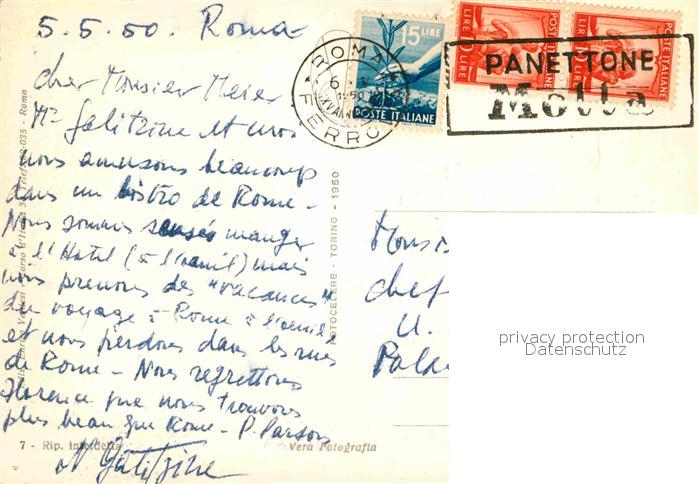 5.5.50. Roma
Cher Monsieur Meier
Mr Galitzine et moi
nous amusons beaucoup
dans un bistro de Rome -
Nous sommes sensés manger
à l'Hotel (à l'oeuil) mais
nous prenons des "vacances"
du voyage à Rome à l'oeuil
et nous perdons dans les rues
de Rome - Nous regrettons
Florence que nous trouvons
plus beau que Rome - P. Parsons
N Galitzine
7 - Rip. interdetta
Vera Fotografia
FOTOCELERE - TORINO - 1950
Roma
ROMA
FERROVIA
1950
15 LIRE
POSTE ITALIANE
LIRE 10
POSTE ITALIANE
LIRE 10
POSTE ITALIANE
PANETTONE
Motta
Monsi
chef
U.
Pala
privacy protection
Datenschutz